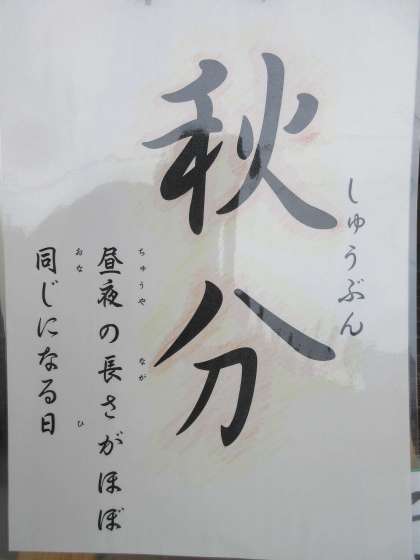 秋分
しゅうぶん
昼夜の長さがほぼ
ちゅうや
なが
同じになる日
おな
ひ